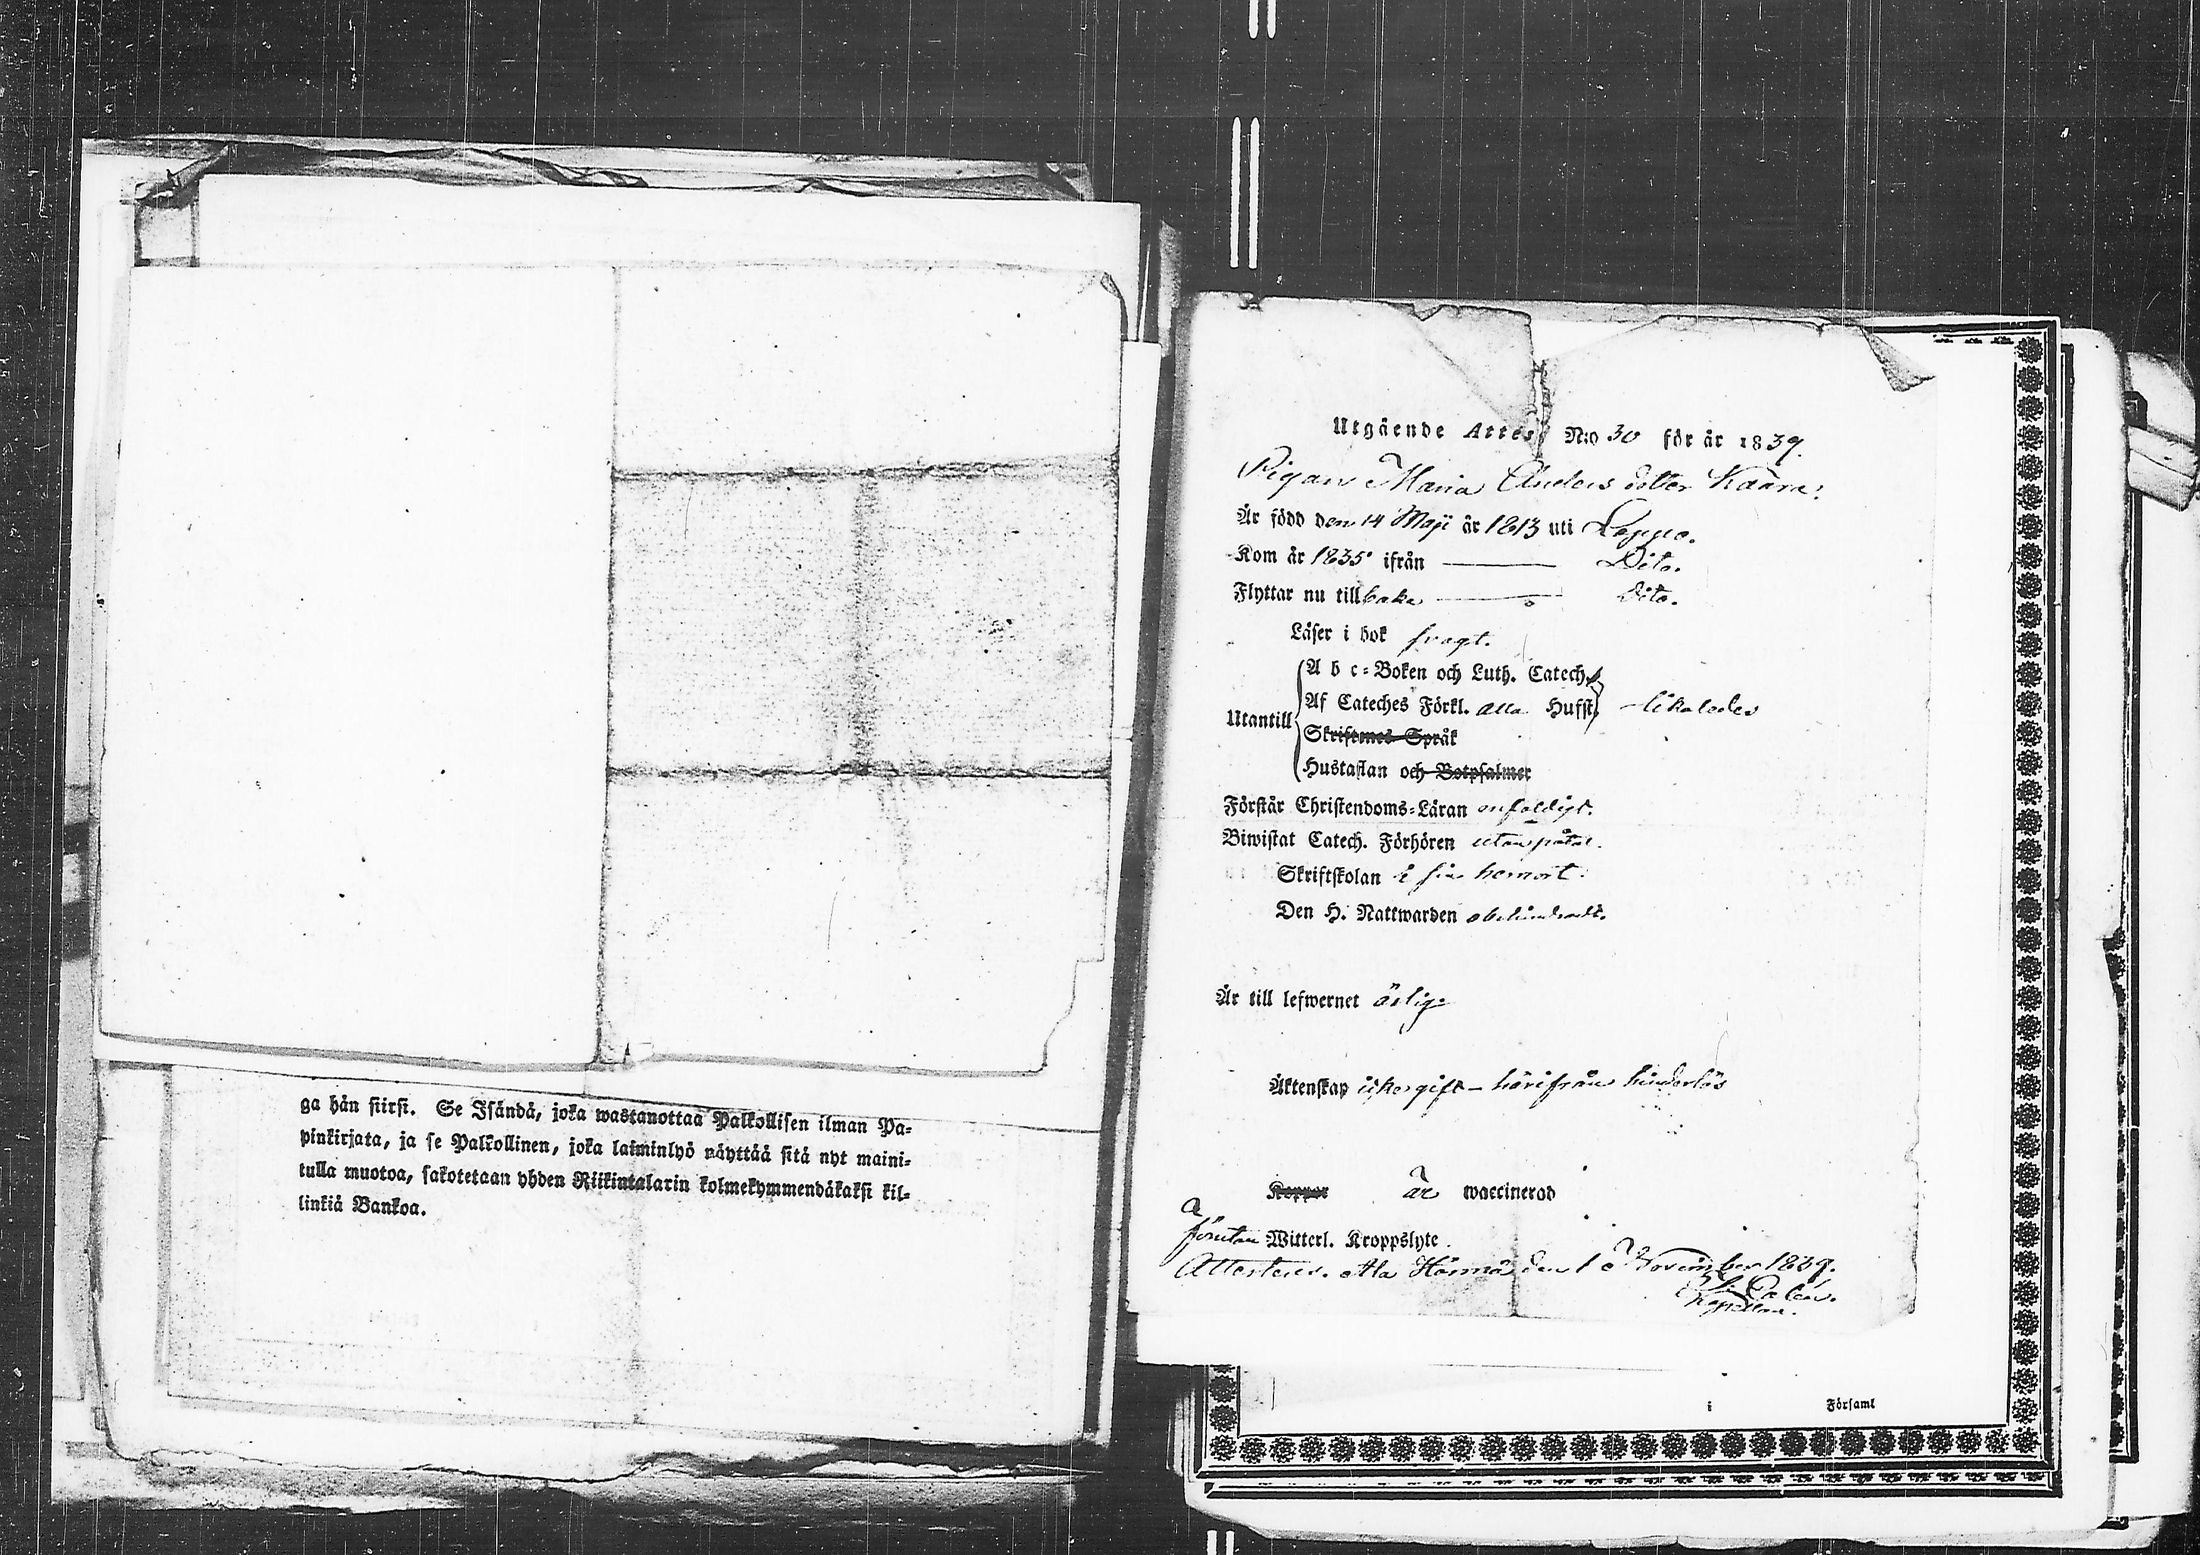 ga hån siirsi. Se Isändä, joka wastanottaa Palkollisen ilman Pa-
pinkirjata, ja se Palkollinen, joka laiminlyö näyttää sitä nyt maini-
tulla muotoa, sakotetaan yhden Riikintalarin kolmekymmendäkaksi kil-
linkiä Bankoa.
Utgående Attest N:o 30 för år 1839.
Pigan Maria Anders dotter Kaara:
Är född den 14 Maji år 1813 uti Lappo.
Kom år 1835 ifrån — Dito.
Flyttar nu tillbaka — dito.
Läser i bok svagt.
A b c-Boken och Luth. Catech.
Utantill Af Cateches Förkl. alla Hufst, likaledes
Skriftenes Språk
Hustaflan och Botpsalmer
Förstår Christendoms-Läran enfaldigt.
Biwistat Catech. Förhören utan påtal.
Skriftskolan i sin hemort.
Den H. Nattwarden obehindradt.
Är till lefwernet ärlig
Äktenskap icke gift – härifrån hinderlös
Koppor är waccinerad
förutan Witterl. Kroppslyte.
Attesteras. Ala Härmä den 1 November 1839.
Kapellan.
i Församl